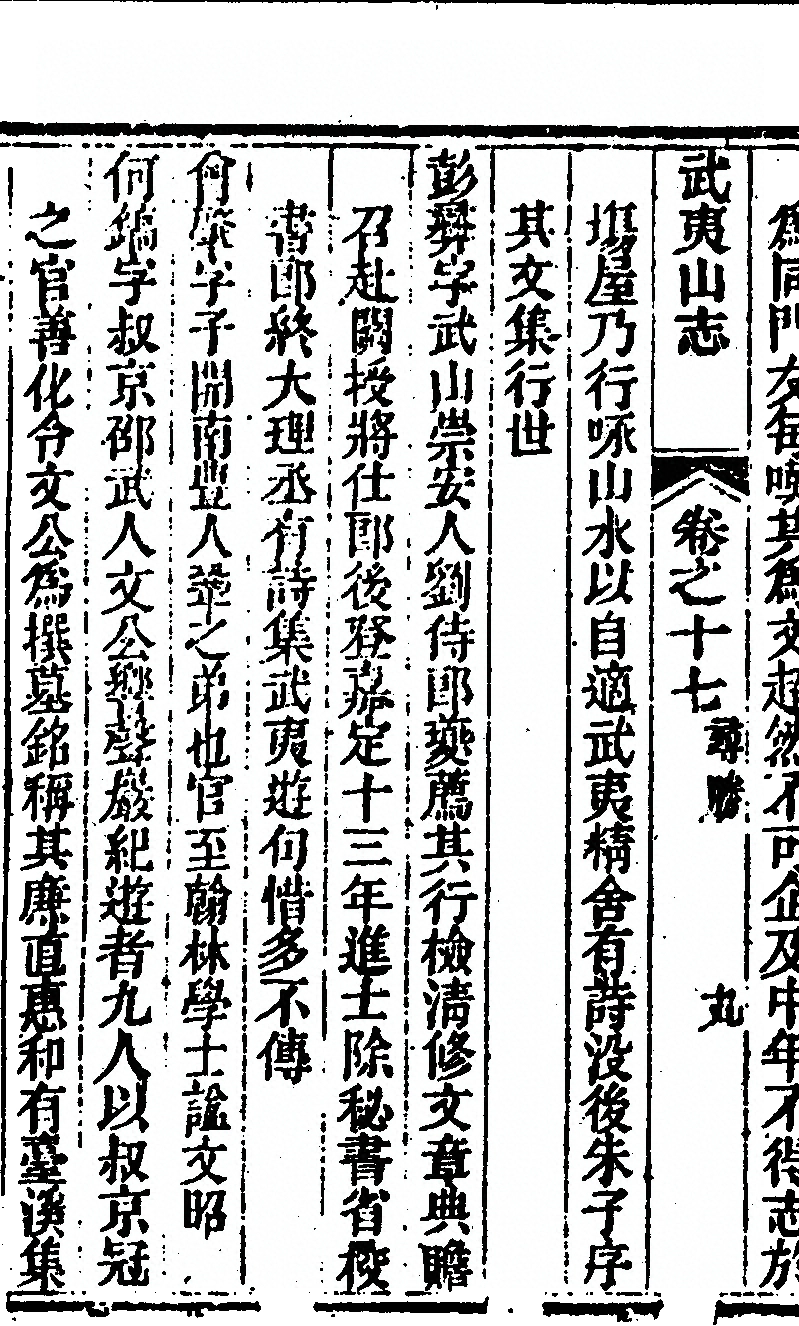 爲同門友每嘆其爲文超然不可企及中年不得志於
武夷山志 卷之十七 尋勝 九
塲屋乃行咏山水以自適武夷精舍有詩没後朱子序
其文集行世
彭彝字武山崇安人劉侍郎爚薦其行檢淸修文章典贍
召赴闕授將仕郎後登嘉定十三年進士除秘書省校
書郎終大理丞有詩集武夷遊句惜多不傳
曾肇字子開南豐人鞏之弟也官至翰林學士諡文昭
何鎬字叔京邵武人文公響聲巖紀遊者九人以叔京冠
之官善化令文公爲撰墓銘稱其廉直惠和有臺溪集